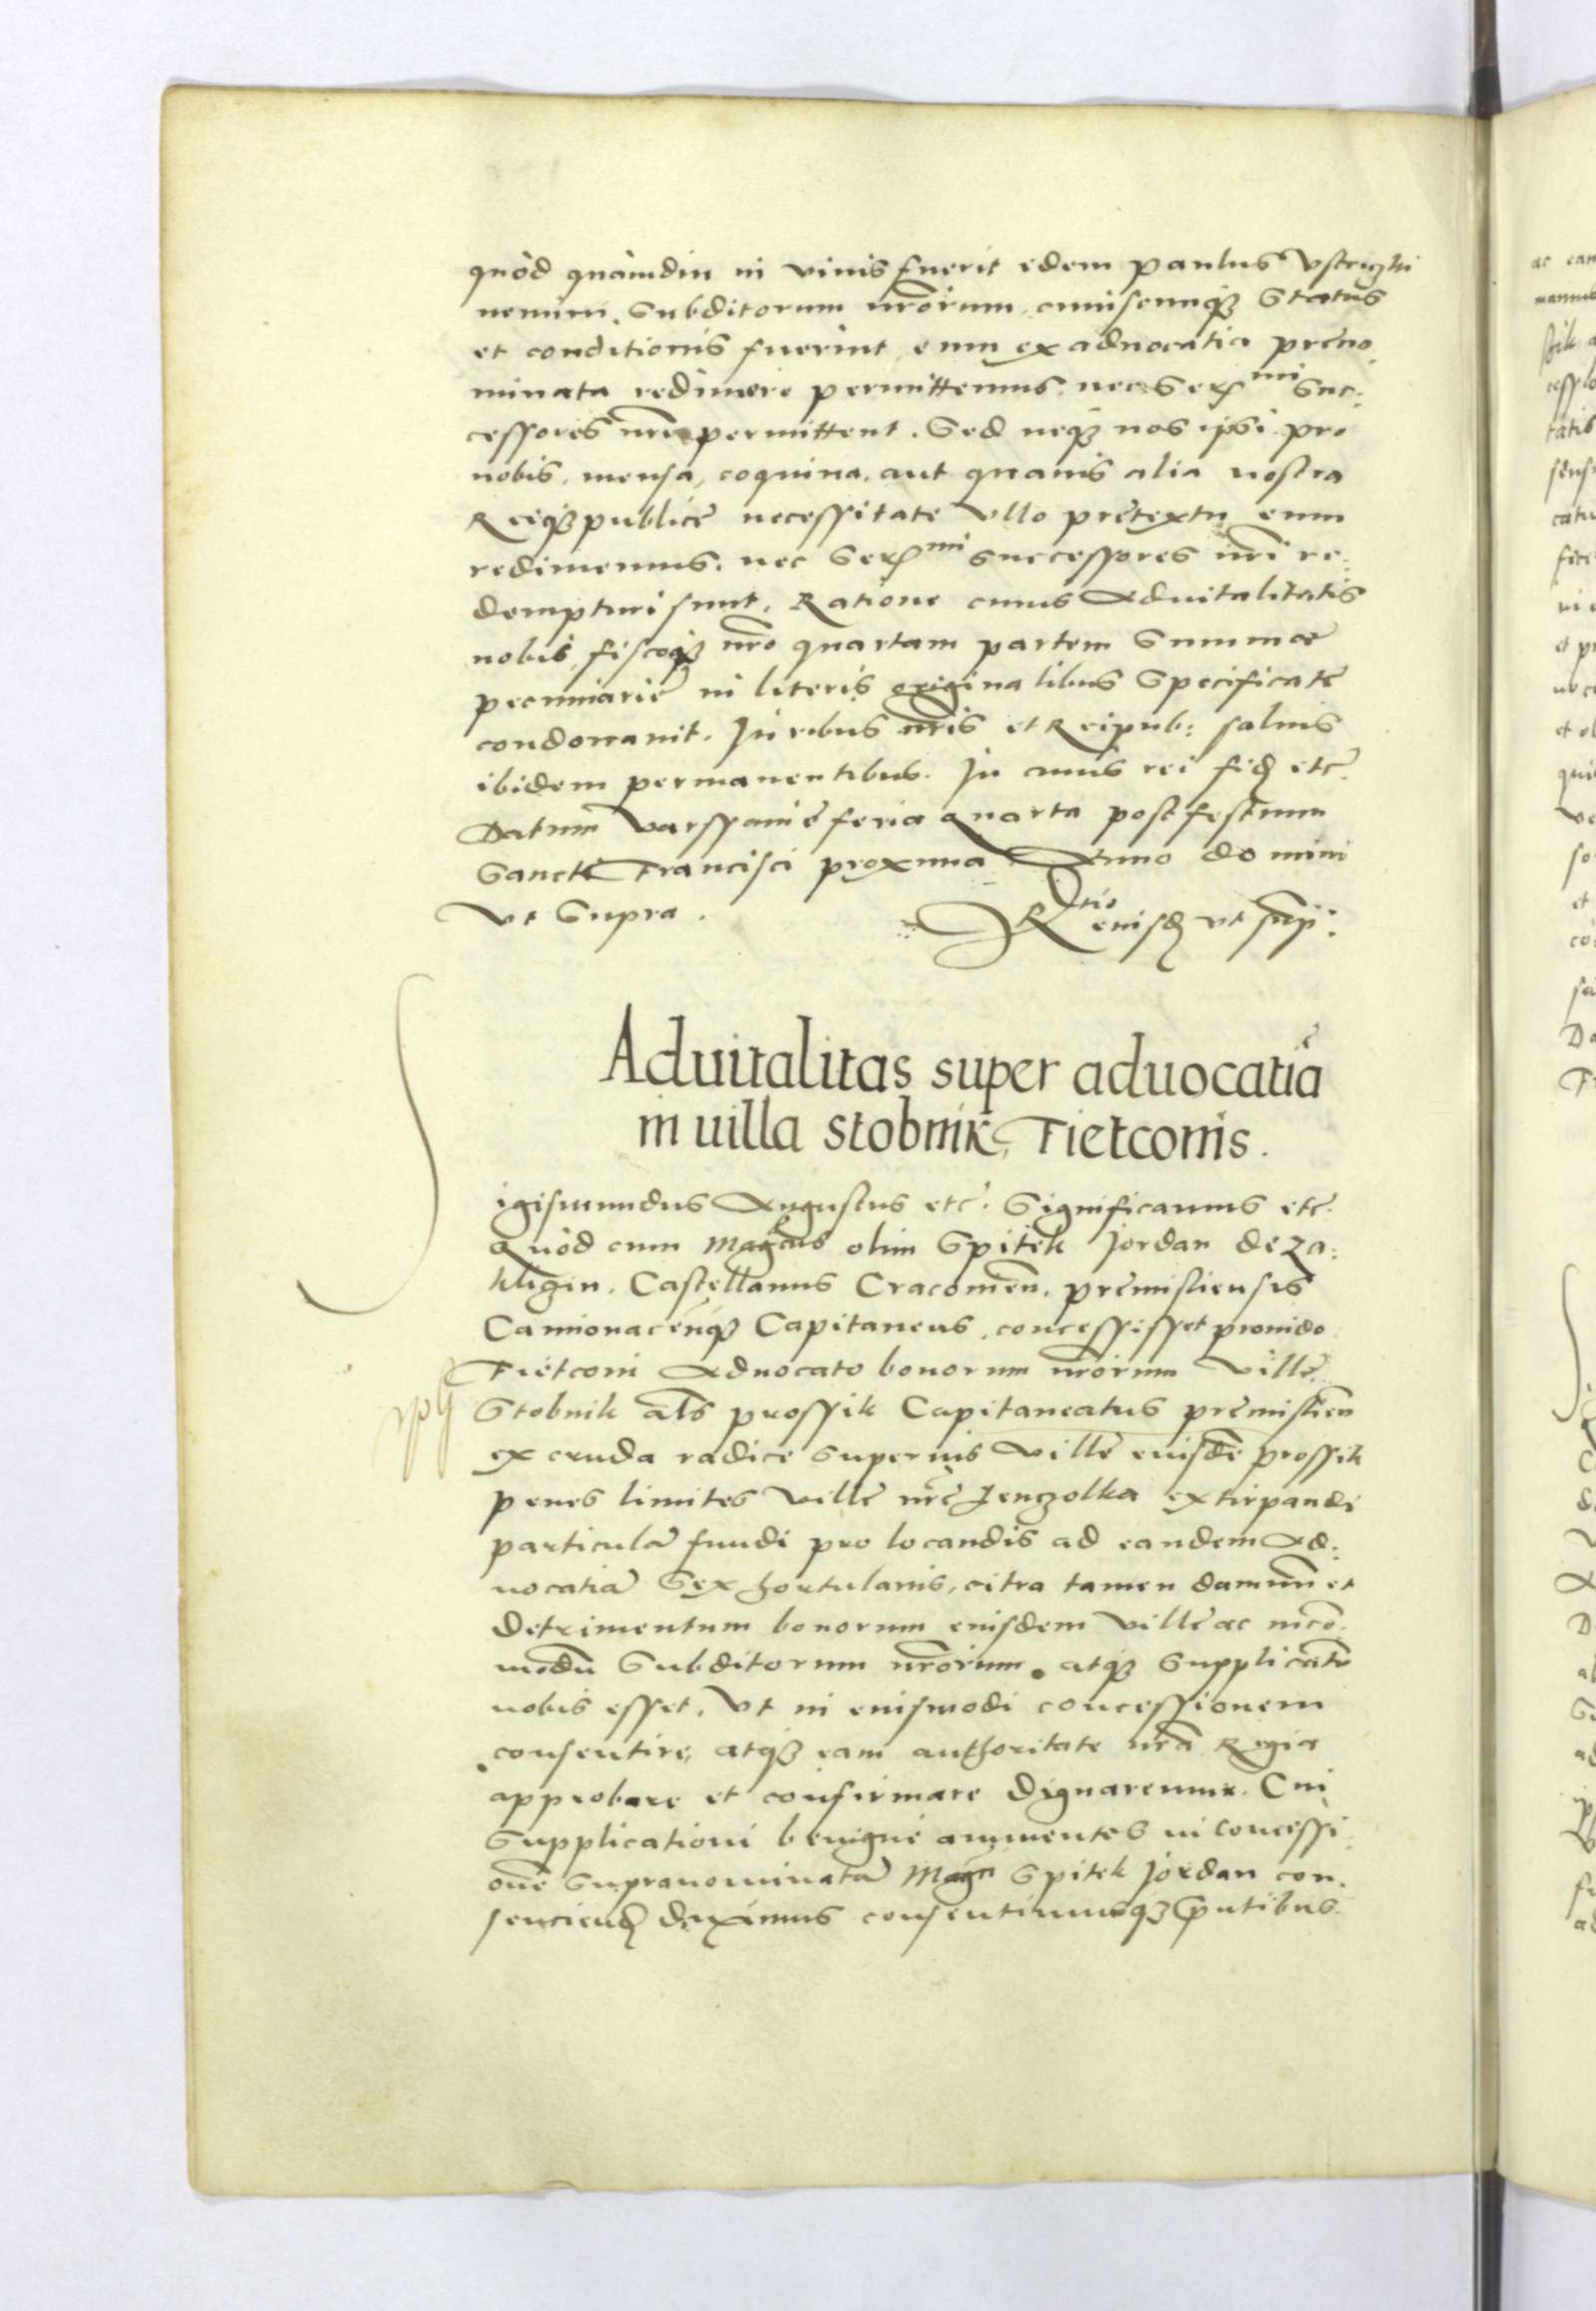 quòd quàmdiu in viuis fuerit idem paulus Vstrzijki
nemini subditorum nrõrum, cuiuscunq3 status
et conditionis fuerint, eum ex aduocatia preno
minata redimere permittemus, nec Ser^mi suc:
cessores nrĩ permittent. Sed neq3 nos ipsi pro
nobis, mensa, coquina, aut quauis alia nostra
Reiq3 publicę necessitate vllo prętextu eum
redimemus, nec Ser^mi successores nrĩ re:
dempturi sunt, Ratione cuius Aduitalitatis
nobis, fiscoq3 nrõ quartam partem Summae
pecuniarię in literis originalibus specificatę
condonauit. Iuribus nrĩs et Reipub: saluis
ibidem permanentibus. In cuius rei fid etc.
Datum Varssauię feria quarta post festum
Sancti Francisci proxima Anno domini
vt supra.
Rtio eiusd vt sup:
Aduitalitas super aduocatia
in uilla Stobnik, Fietconis.
igismundus Augustus etc. Significamus etc.
Quòd cum Magcus olim Spitek Jordan de Za:
kligin, Castellanus Cracouien, premisliensis
Camionacenq3 Capitaneus, concessisset prouido
Fietconi Aduocato bonorum nrõrum villę
Stobnik als prossik Capitaneatus premislien
ex cruda radice superius villę eiusdẽ prossik
penes limites villę nrẽ Jenczolka extirpandi
particulã fundi pro locandis ad eandem Ad:
uocatiã sex hortulanis, citra tamen damnũ et
detrimentum bonorum eiusdem villę ac incõ
modũ subditorum nrõrum. atq3 supplicatũ
nobis esset, vt in eiusmodi concessionem
consentire, atq3 eam authoritate nrã Regia
approbare et confirmare dignaremur. Cui
supplicationi benignè annuentes in concessi
onẽ supranominatã Magci Spitek Jordan con.
senciend duximus consentimusq3 pntibus.